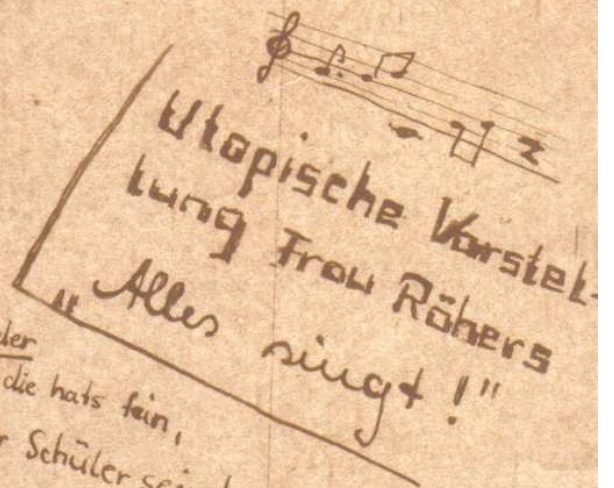 Utopische Vorstel-
lung Frau Röhers
„Alles singt!"
die hats fein,
Schüler